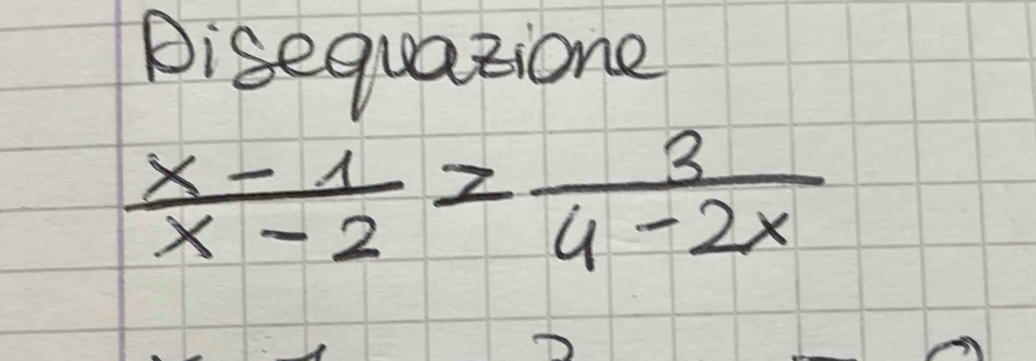 Disequazione
x - 1 / x - 2 ≥ 3 / 4 - 2x